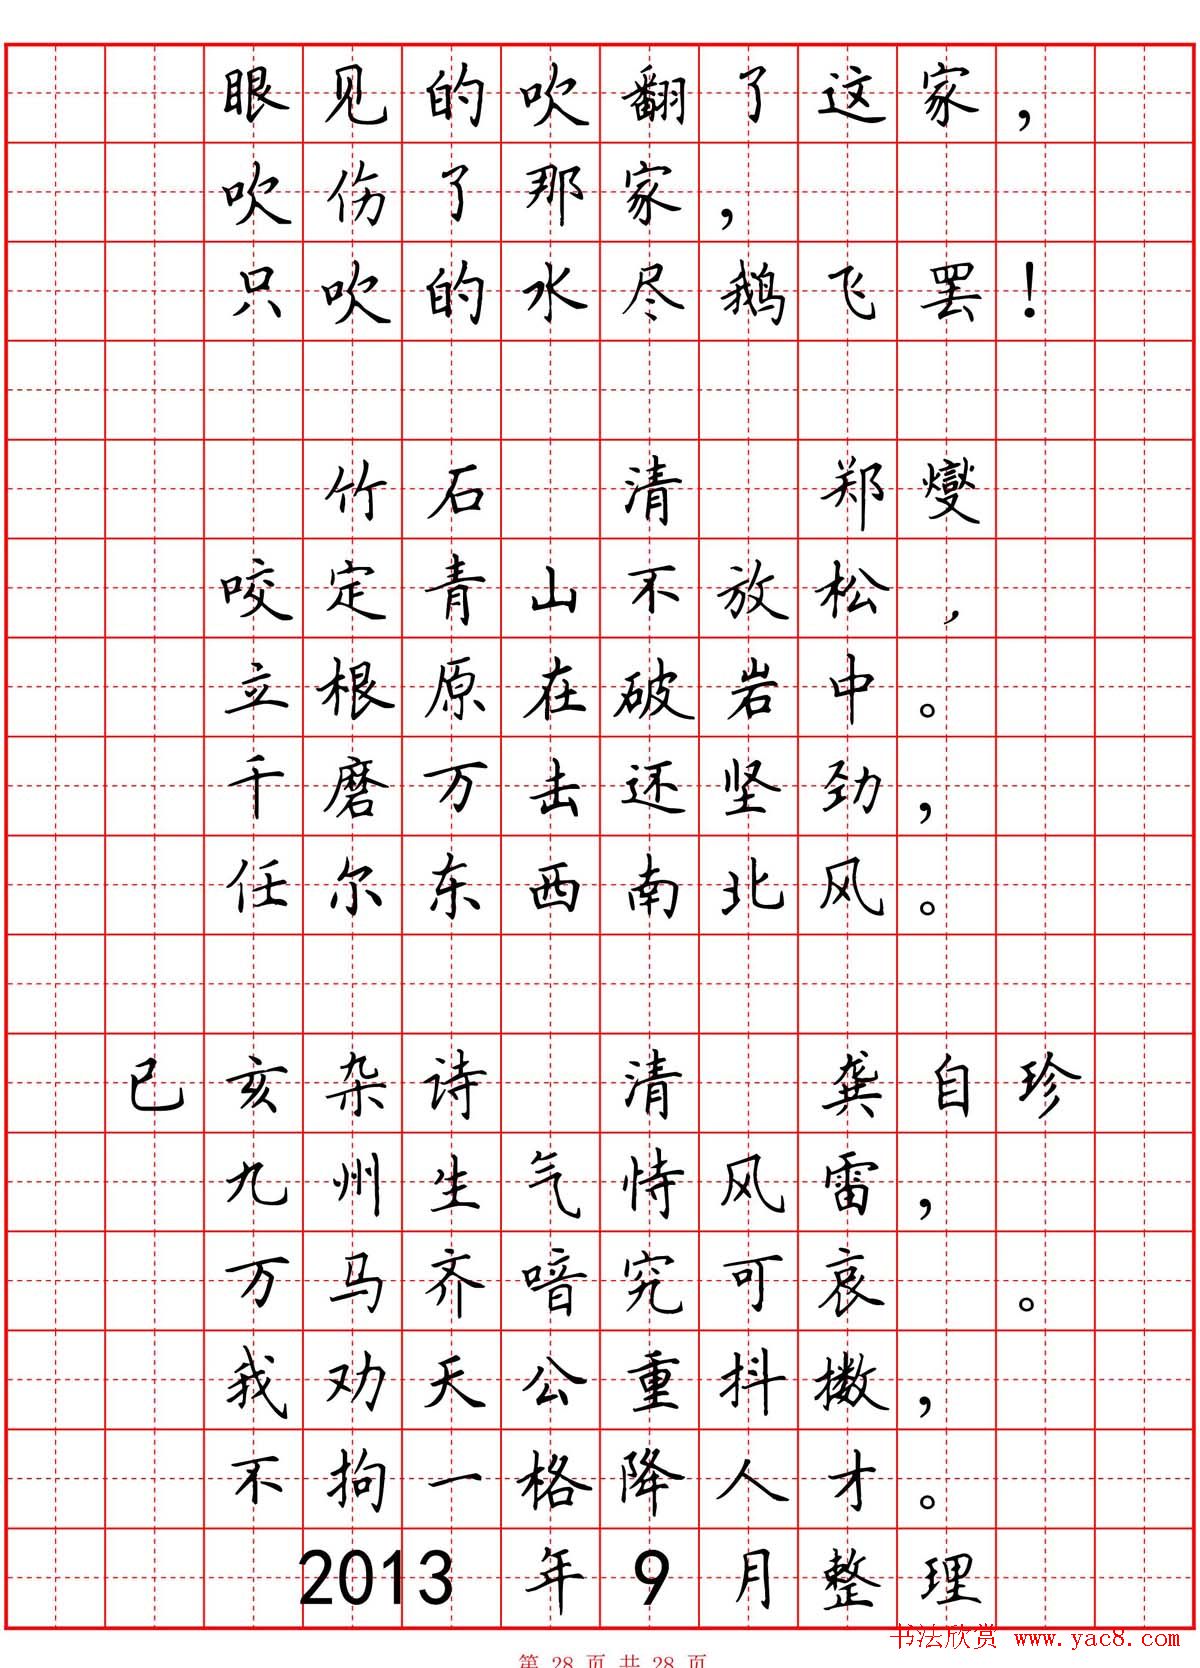 眼见的吹翻了这家，
吹伤了那家，
只吹的水尽鹅飞罢！
竹石 清 郑燮
咬定青山不放松，
立根原在破岩中。
千磨万击还坚劲，
任尔东西南北风。
已亥杂诗 清 龚自珍
九州生气恃风雷，
万马齐喑究可哀 。
我劝天公重抖擞，
不拘一格降人才。
2013 年 9 月整理
书法欣赏 www.yac8.com
第 28 页 共 28 页